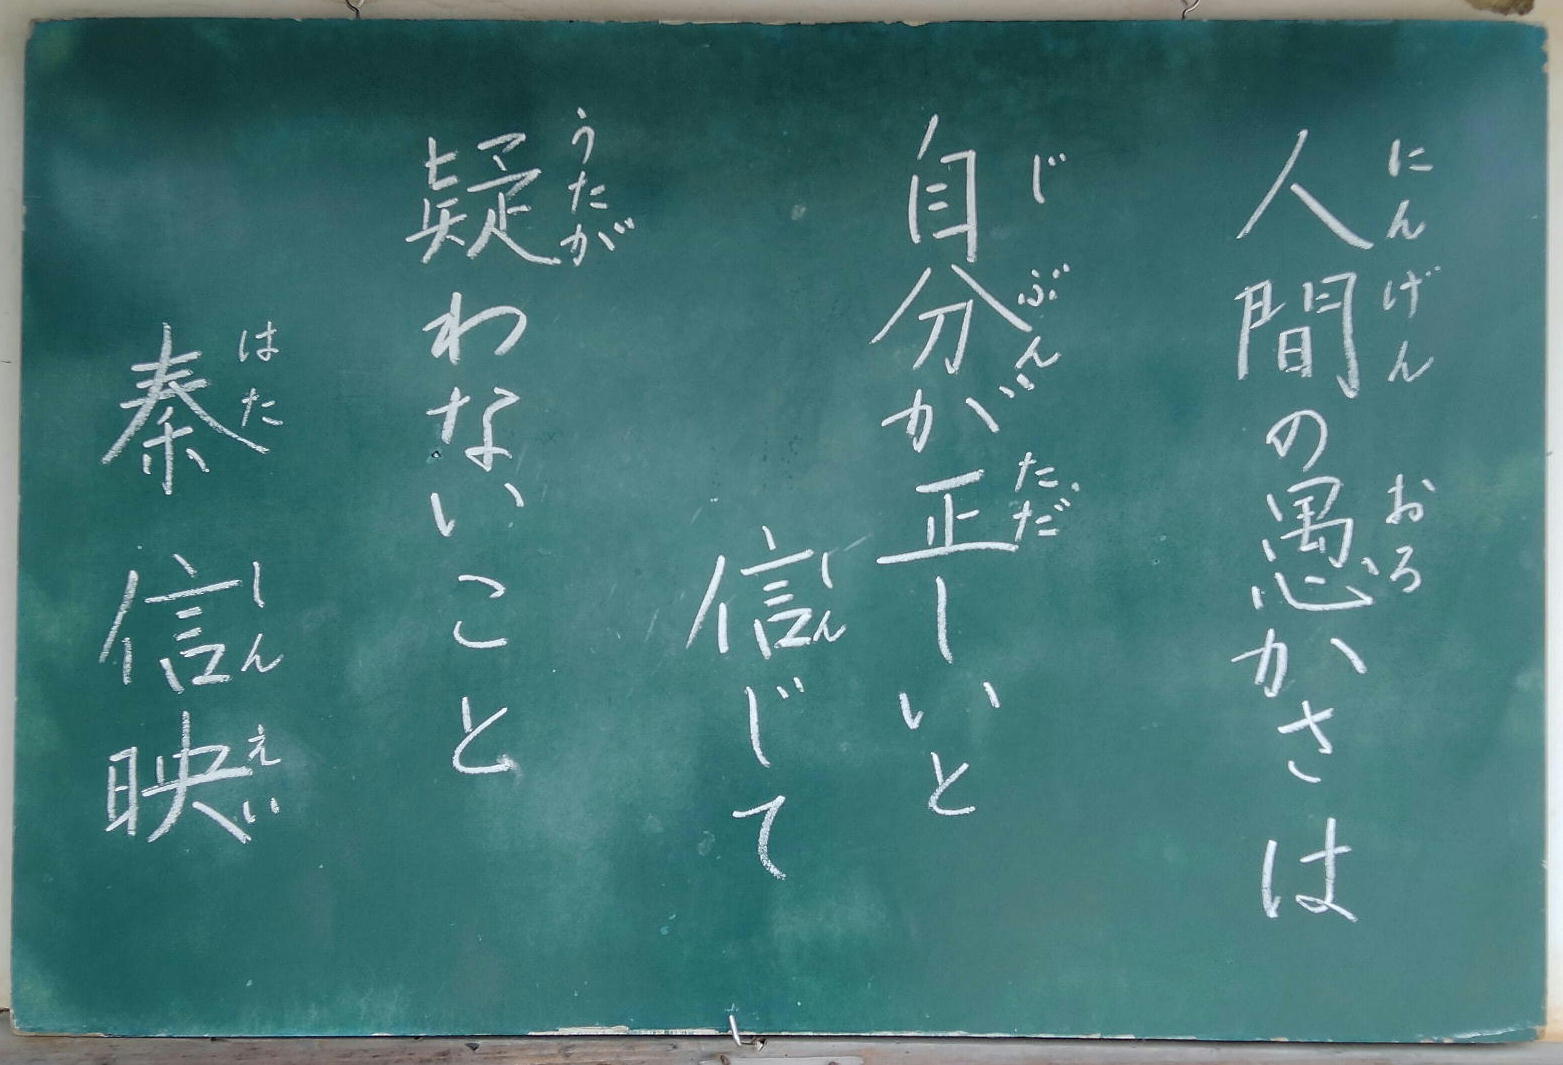 人間の愚かさは
にんげん おろ
自分が正しいと
じぶん ただ
信じて
しん
疑わないこと
うたが
秦 信映
はた しんえい